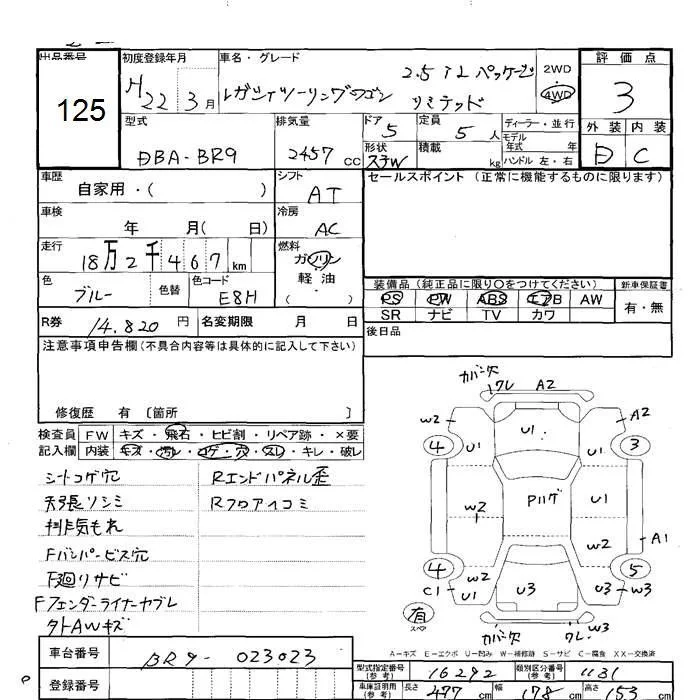 出品番号 初度登録年月 車名・グレード 評価点
125 H22 3月 レガシィツーリングワゴン 2.5i Lパッケージ リミテッド 2WD 4WD 3
型式 排気量 ドア 定員 ディーラー・並行 外装 内装
DBA-BR9 2457cc 5 5人 モデル年式 年 D C
形状 ステW 積載 kg ハンドル 左・右
車歴 シフト セールスポイント(正常に機能するものに限ります)
自家用・( ) AT
車検 冷房
年 月( 日) AC
走行 燃料
18万2千467km ガソリン
軽油
( )
色 色替 色コード 装備品(純正品に限り○をつけてください) 新車保証書
ブルー E8H PS PW ABS エアB AW 有・無
SR ナビ TV カワ
R券 14.820円 名変期限 月 日 後日品
注意事項申告欄(不具合内容等は具体的に記入して下さい)
修復歴 有 〔箇所 〕
検査員 FW キズ・飛石・ヒビ割・リペア跡・×要
記入欄 内装 キズ・汚レ・コゲ・穴・スレ・キレ・破レ
シートコゲ穴 Rエンドパネル歪
天張リシミ Rフロアイコミ
排気もれ
Fバンパービス穴
下廻りサビ
Fフェンダーライナーヤブレ
タトAWキズ
カバー欠 ワレ A2
W2 A2
4 U1 U1 U1 3
W2 Pハゲ U1
W2 A1
4 W2 W2 5
C1 U1 U3 U3 W3
有 スペア
カバー欠 ワレ W3
A-キズ E-エクボ U-凹み W-補修跡 S-サビ C-腐食 XX-交換済
車台番号 BR9-023023
登録番号
型式指定番号(参考) 16292 類別区分番号(参考) 1131
車庫証明用(参考) 長さ 477cm 幅 178cm 高さ 153cm